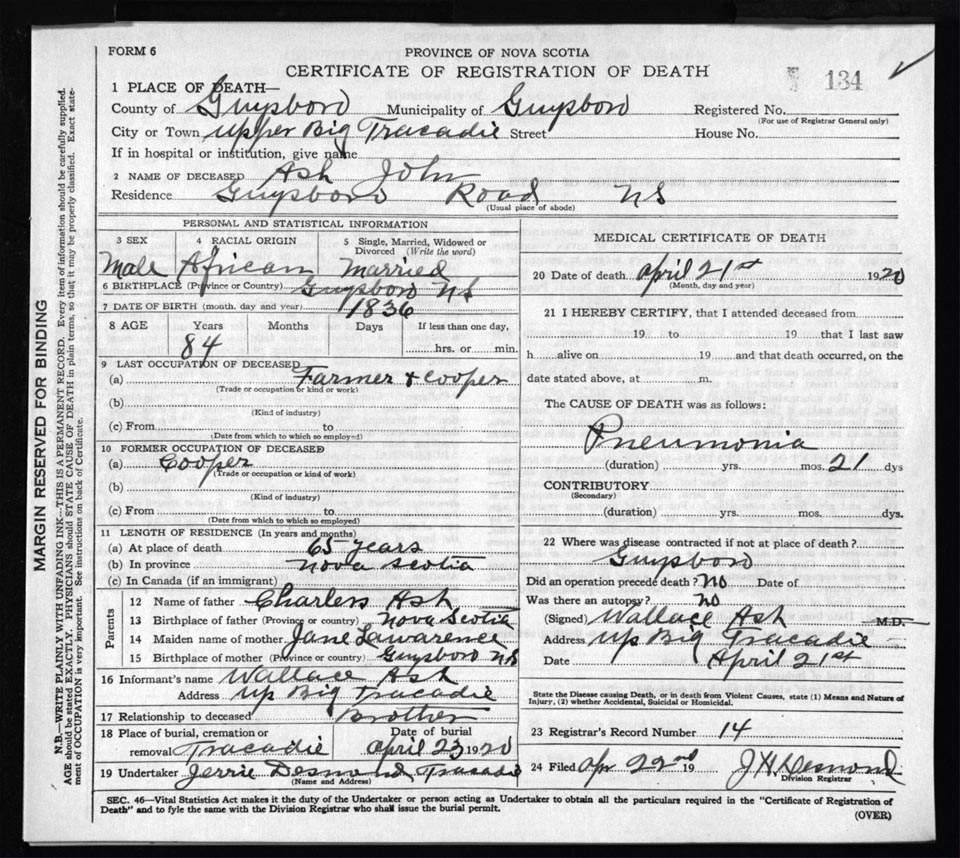 FORM 6
PROVINCE OF NOVA SCOTIA
CERTIFICATE OF REGISTRATION OF DEATH
134
1 PLACE OF DEATH—
County of Guysboro Municipality of Guysboro Registered No.
(For use of Registrar General only)
City or Town Upper Big Tracadie Street House No.
If in hospital or institution, give name
2 NAME OF DECEASED Ash John
Residence Guysboro Road NS
(Usual place of abode)
PERSONAL AND STATISTICAL INFORMATION
3 SEX 4 RACIAL ORIGIN 5 Single, Married, Widowed or Divorced (Write the word)
Male African Married
6 BIRTHPLACE (Province or Country) Guysboro NS
7 DATE OF BIRTH (month, day and year) 1836
8 AGE Years Months Days If less than one day,
84 hrs. or min.
9 LAST OCCUPATION OF DECEASED
(a) Farmer & Cooper
(Trade or occupation or kind or work)
(b)
(Kind of industry)
(c) From to
(Date from which to which so employed)
10 FORMER OCCUPATION OF DECEASED
(a) Cooper
(Trade or occupation or kind of work)
(b)
(Kind of industry)
(c) From to
(Date from which to which so employed)
11 LENGTH OF RESIDENCE (In years and months)
(a) At place of death 65 years
(b) In province Nova Scotia
(c) In Canada (if an immigrant)
Parents
12 Name of father Charles Ash
13 Birthplace of father (Province or country) Nova Scotia
14 Maiden name of mother Jane Lawarence
15 Birthplace of mother (Province or country) Guysboro NS
16 Informant's name Wallace Ash
Address Up Big Tracadie
17 Relationship to deceased Brother
18 Place of burial, cremation or Date of burial
removal Tracadie April 23 1920
19 Undertaker Jerrie Desmond Tracadie
(Name and Address)
MEDICAL CERTIFICATE OF DEATH
20 Date of death April 21st 1920
(Month, day and year)
21 I HEREBY CERTIFY, that I attended deceased from
19 to 19 that I last saw
h alive on 19 and that death occurred, on the
date stated above, at m.
The CAUSE OF DEATH was as follows:
Pneumonia
(duration) yrs. mos. 21 dys
CONTRIBUTORY
(Secondary)
(duration) yrs. mos. dys.
22 Where was disease contracted if not at place of death?
Guysboro
Did an operation precede death? No Date of
Was there an autopsy? No
(Signed) Wallace Ash M.D.
Address Up Big Tracadie
Date April 21st
State the Disease causing Death, or in death from Violent Causes, state (1) Means and Nature of
Injury, (2) whether Accidental, Suicidal or Homicidal.
23 Registrar's Record Number 14
24 Filed Apr 22nd 19 J H Desmond
Division Registrar
SEC. 46—Vital Statistics Act makes it the duty of the Undertaker or person acting as Undertaker to obtain all the particulars required in the "Certificate of Registration of
Death" and to fyle the same with the Division Registrar who shall issue the burial permit.
(OVER)
MARGIN RESERVED FOR BINDING
N.B.—WRITE PLAINLY WITH UNFADING INK—THIS IS A PERMANENT RECORD. Every item of information should be carefully supplied.
AGE should be stated EXACTLY. PHYSICIANS should STATE CAUSE OF DEATH in plain terms, so that it may be properly classified. Exact state-
ment of OCCUPATION is very important. See instructions on back of Certificate.